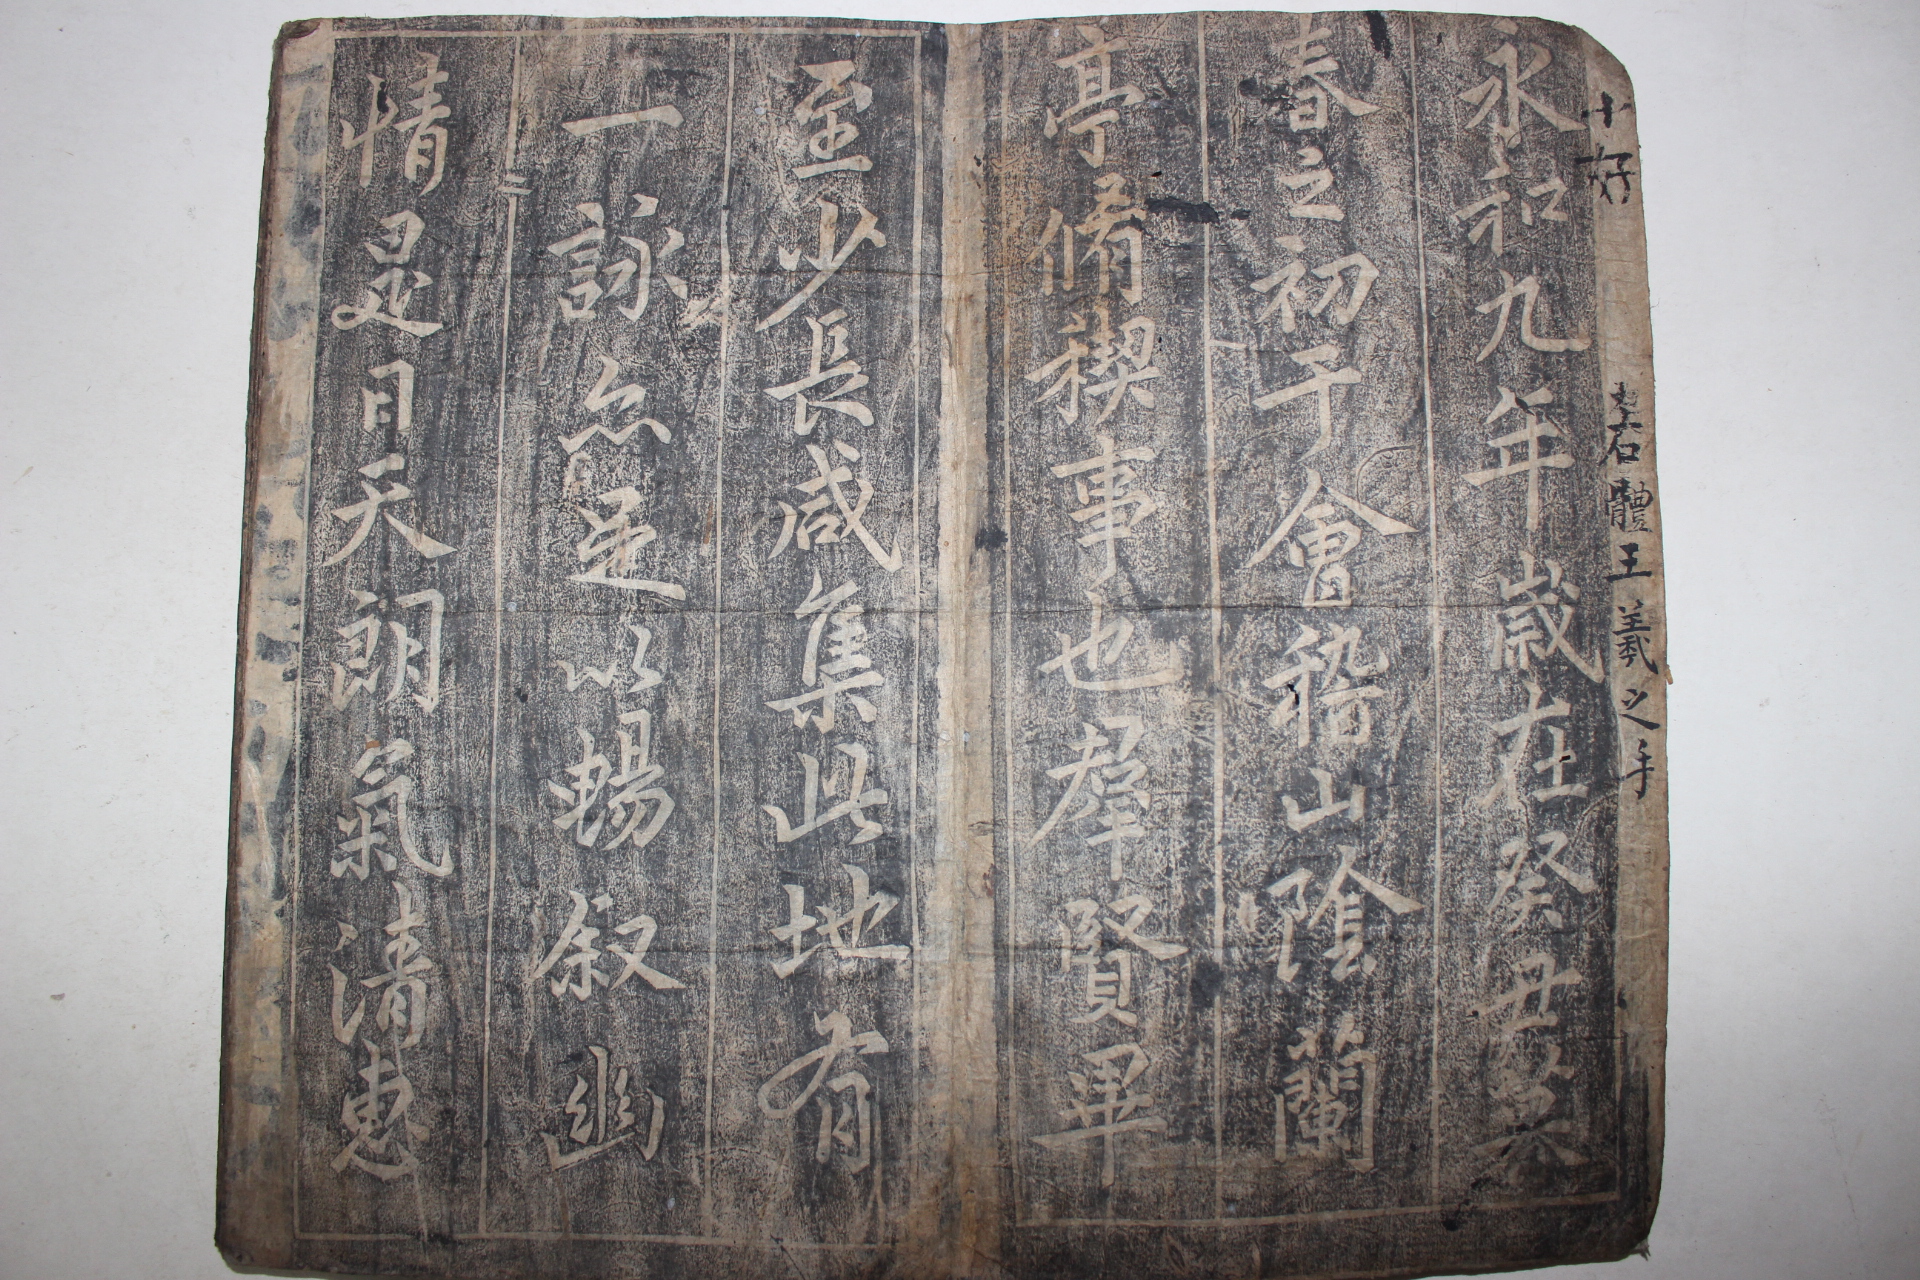 十好
右體王羲之手
永和九年歲在癸丑暮
春之初于會稽山陰蘭
亭脩稧事也羣賢畢
至少長咸集此地有
一詠亦足以暢叙幽
情是日天朗氣清惠